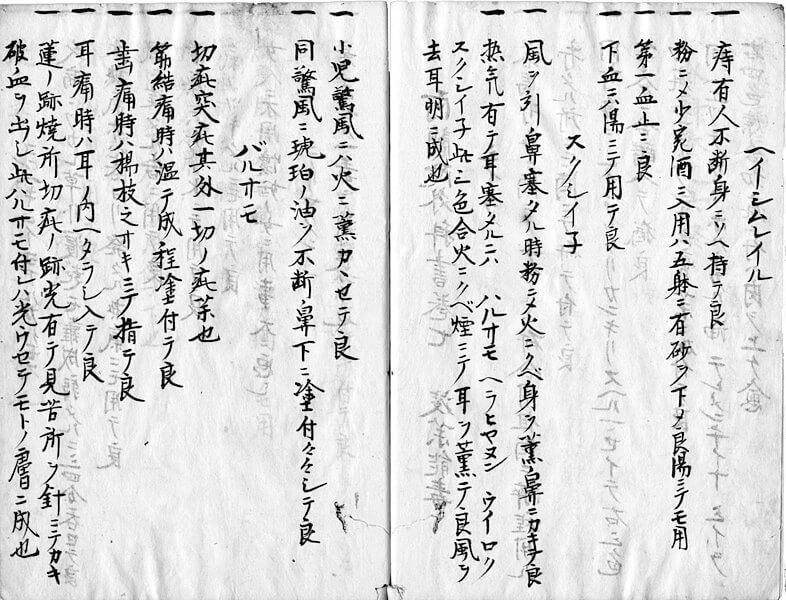 ヘイシムレイル
一 痔有人不断身ニソヘ持テ良
一 粉ニメ少宛酒ニ入用ハ五躰ニ有石砂ヲ下メ良湯ニテモ用
一 第一血止ニ良
一 下血ニハ湯ニテ用テ良
スクシイ子
一 風ヲ引鼻塞タル時粉ニメ火ニクベ身ヲ薫鼻ニカキテ良
一 热気有テ耳塞タルニハ ハルサモ ヘラヒヤヌン ウイロク
スクシイ子此三色合火ニクベ煙ニテ耳ヲ薫テ良風ヲ
去耳明ニ成也
一 小児驚風ニハ火ニ薫カヽセテ良
一 同驚風ニ琥珀ノ油ヲ不断鼻下ニ塗付々々シテ良
バルサモ
一 切疵突疵其外一切ノ疵薬也
一 筋結痛時ハ温テ成程塗付テ良
一 歯痛時ハ楊枝之サキニテ指テ良
一 耳痛時ハ耳ノ内ヘタラシ入テ良
一 蓮ノ跡焼所切疵ノ跡光有テ見苦所ヲ針ニテカキ
破血ヲ出シ此ハルサモ付レハ光ウセテモトノ膚ニ成也